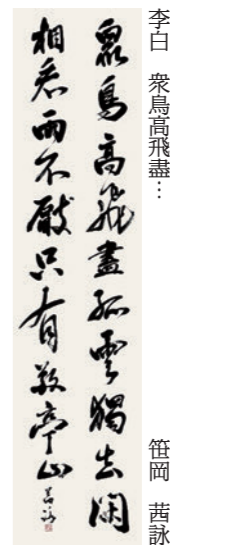 李白 衆鳥高飛盡… 笹岡 茜詠
衆鳥高飛盡孤雲獨去閑
相看兩不厭只有敬亭山 茜詠